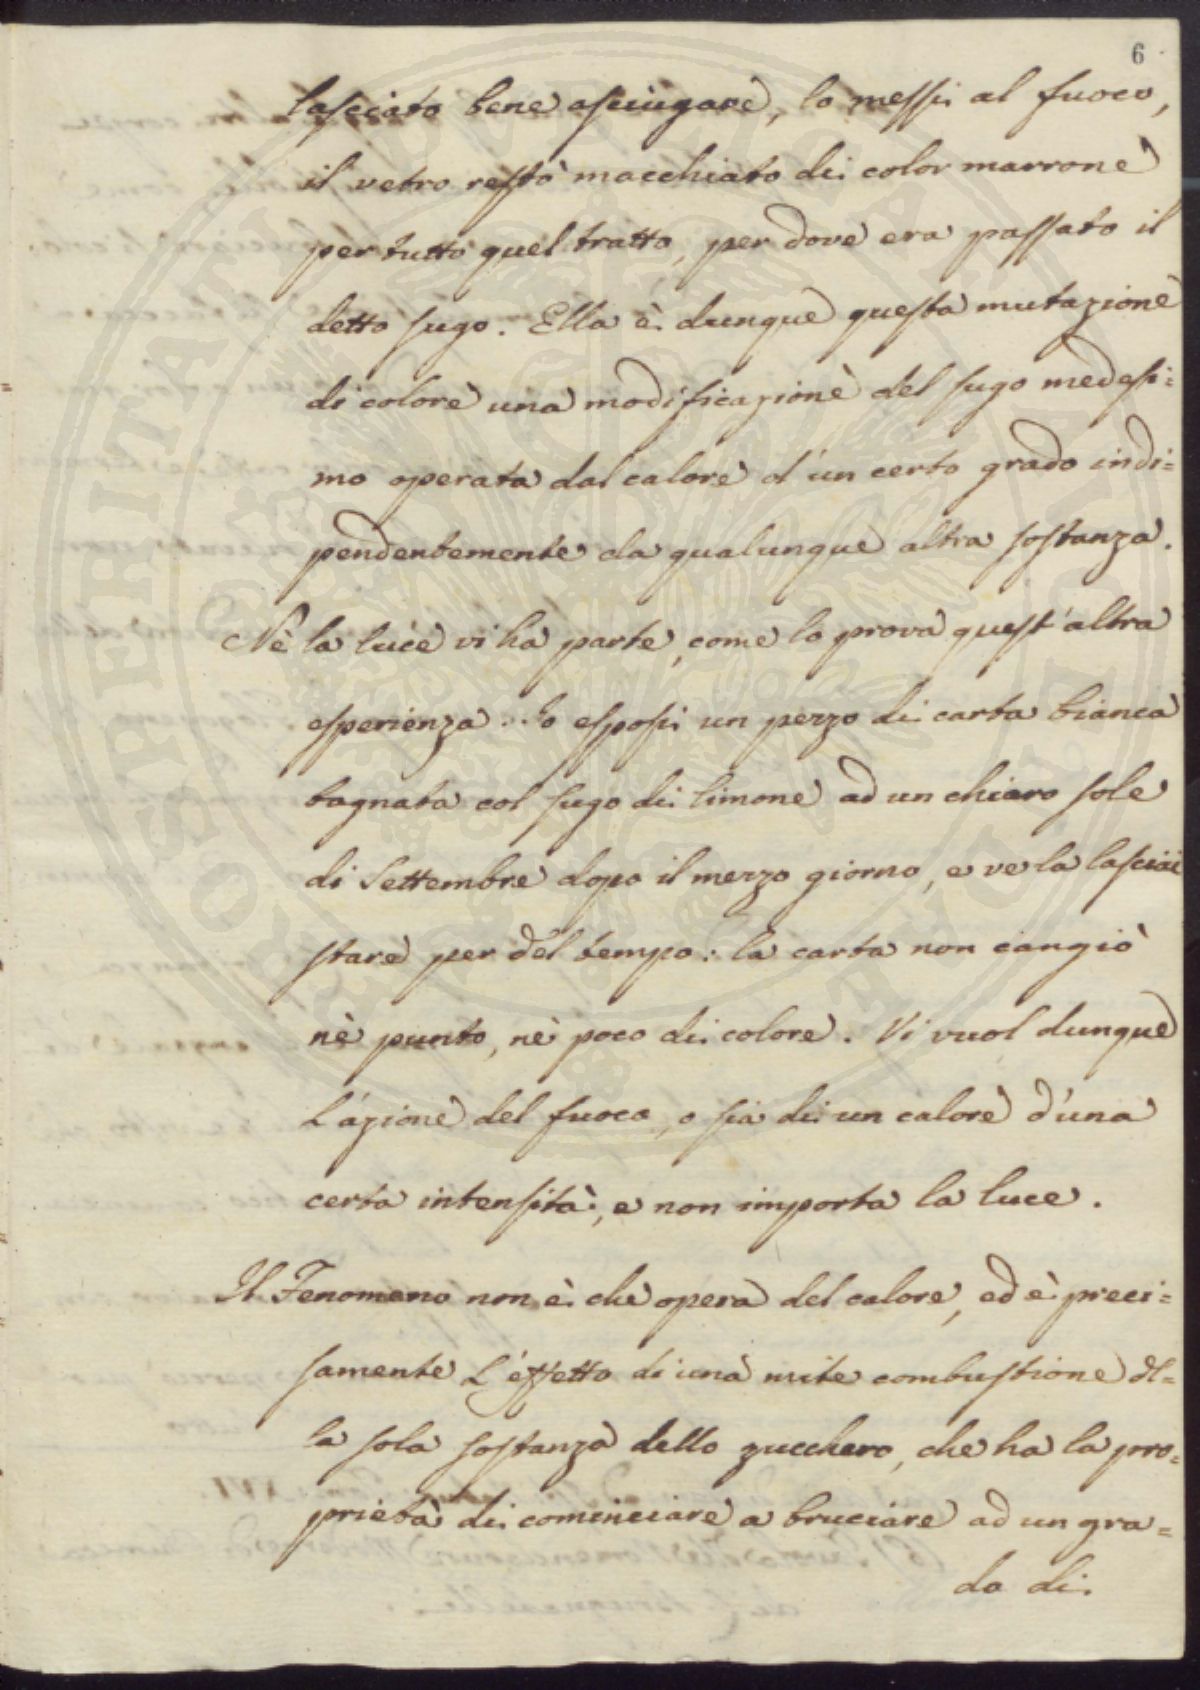 6
lasciato bene asciugare, lo messi al fuoco,
il vetro restò macchiato di color marrone
per tutto quel tratto, per dove era passato il
detto sugo. Ella è dunque questa mutazione
di colore una modificazione del sugo medesi=
mo operata dal calore d'un certo grado indi=
pendentemente da qualunque altra sostanza.
Nè la luce vi ha parte, come lo prova quest'altra
esperienza. Io esposi un pezzo di carta bianca
bagnata col sugo di limone ad un chiaro sole
di Settembre dopo il mezzo giorno, e ve la lasciai
stare per del tempo: la carta non cangiò
nè punto, nè poco di colore. Vi vuol dunque
l'azione del fuoco, o sia di un calore d'una
certa intensità, e non importa la luce.
Il Fenomeno non è che opera del calore, ed è preci=
samente l'effetto di una mite combustione del=
la sola sostanza dello zucchero, che ha la pro=
prietà di cominciare a bruciare ad un gra=
do di
PROSPERITATI PUBLICAE AUGENDAE